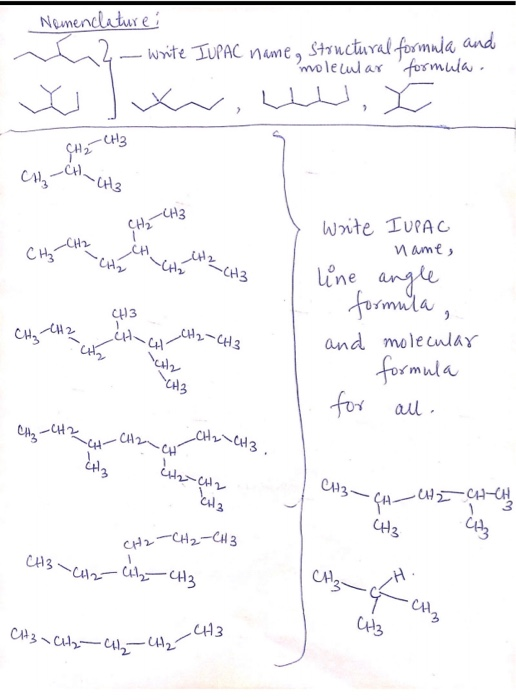 Nomenclature:
— Write IUPAC name, Structural formula and
molecular formula.
, ,
CH2-CH3
CH3-CH-CH3
CH2-CH3
CH3-CH2-CH2-CH-CH2-CH2-CH3
CH3
CH3-CH2-CH2-CH-CH-CH2-CH3
CH2
CH3
CH3-CH2-CH-CH2-CH-CH2-CH3.
CH3 CH2-CH2
CH3
CH2-CH2-CH3
CH3-CH2-CH2-CH3
CH3-CH2-CH2-CH2-CH3
Write IUPAC
name,
line angle
formula,
and molecular
formula
for all.
CH3-CH-CH2-CH-CH3
CH3 CH3
CH3 H
C
CH3 CH3